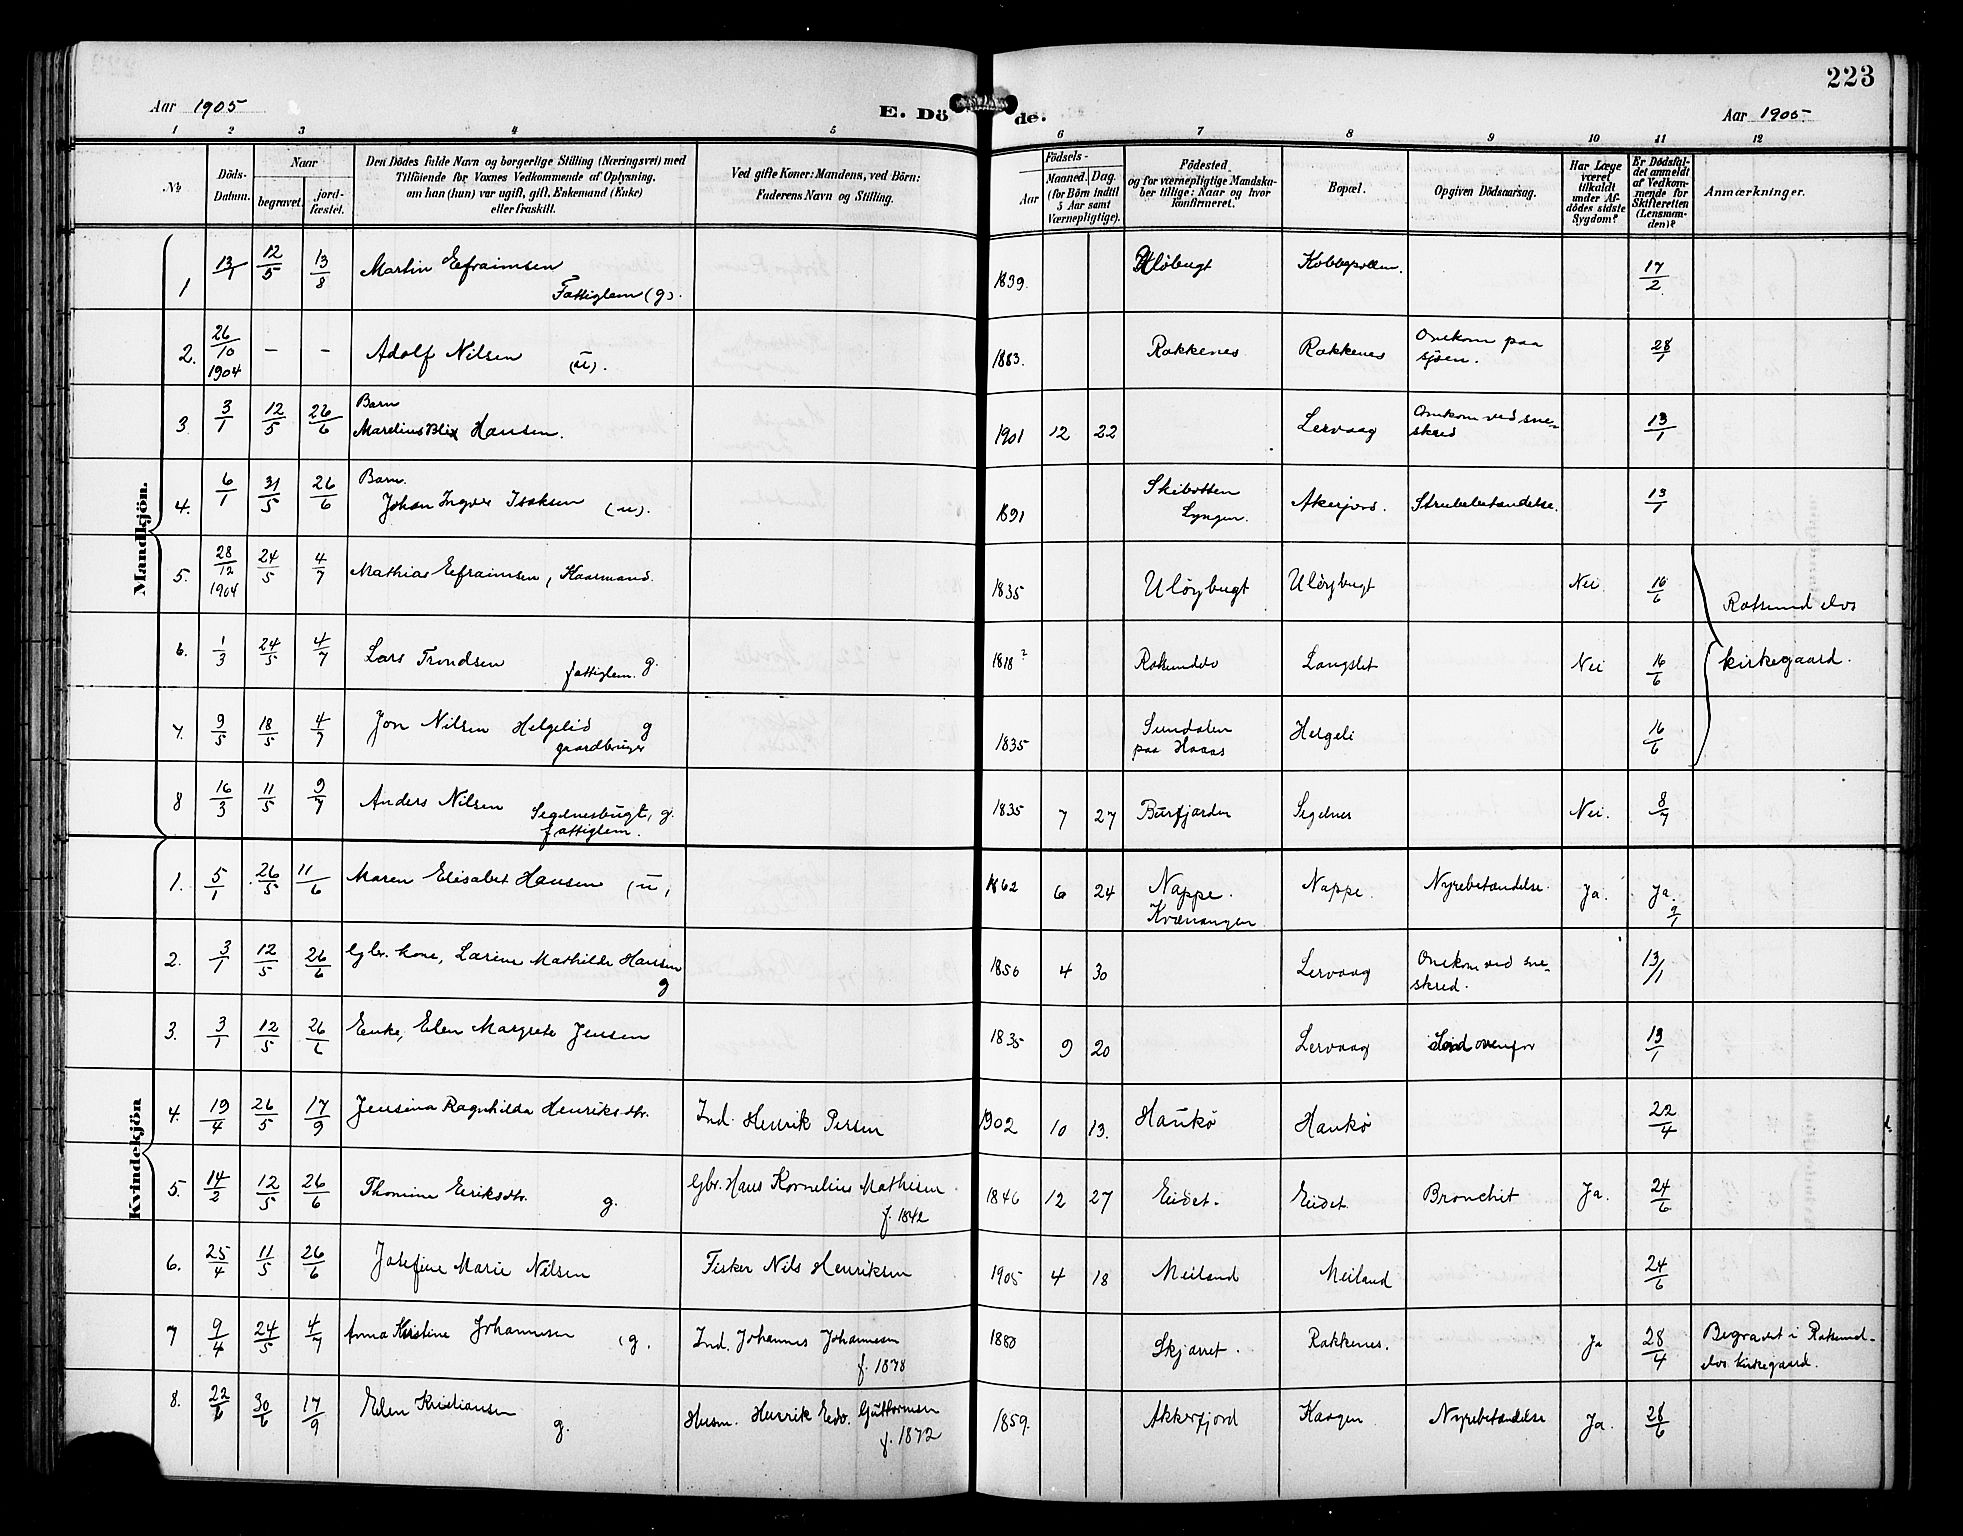 223
Aar 1905
E. Dö
de.
Aar 1905
1 2 3 4 5 6 7 8 9 10 11 12
No
Döds-Datum.
Naar
begravet.
jord-fæstet.
Den Dödes fulde Navn og borgerlige Stilling (Næringsvei) med
Tilföiende for Voxnes Vedkommende af Oplysning,
om han (hun) var ugift, gift, Enkemand (Enke)
eller fraskilt.
Ved gifte Koner: Mandens, ved Börn:
Faderens Navn og Stilling.
Födsels-
Aar
Maaned. Dag.
(for Börn indtil
5 Aar samt
Værnepligtige).
Födested
og for værnepligtige Mandska-
ber tillige: Naar og hvor
konfirmeret.
Bopæl.
Opgiven Dödsaarsag.
Har Læge
været
tilkaldt
under Af-
dödes sidste
Sygdom?
Er Dödsfal-
det anmeldt
af Vedkom-
mende for
Skifteretten
(Lensman-
den)?
Anmærkninger.
Mandkjön.
1 13/1 12/5 13/8 Martin Eefraimsen Fattiglem (g). 1839. Ulöbugt Kobbepollen. 17/2
2. 26/10 1904 – – Adolf Nilsen (u). 1883. Rakkenes Rakkenes Omkom paa sjöen. 28/1
3. 3/1 12/5 26/6 Barn Marelius Blix Hansen. 1901 12 22 Lervaag Omkom ved sne-skred 13/1
4. 6/1 31/5 26/6 Barn. Johan Ingver Isaksen (u). 1891 Skibotten Lyngen. Akerjord. Strubebetændelse. 13/1
5. 28/12 1904 24/5 4/7 Mathias Eefraimsen, Kaarmand. 1835 Ulöybugt Ulöybugt Nei. 16/6 Rotsund elvs
6. 1/3 24/5 4/7 Lars Trondsen fattiglem. g. 1818? Rotsundelv Langslet Nei 16/6 kirkegaard.
7. 9/5 18/5 4/7 Jon Nilsen Helgelid g gaardbruger 1835 Sundalen paa Helgeli 16/6
8 16/3 11/5 9/7 Anders Nilsen Segelnesbugt, g. fattiglem. 1835 7 27 Burfjorden Segelnes Nei. 8/7
Kvindekjön
1. 5/1 26/5 11/6 Maren Elisabet Hansen (u) 1862 6 24 Nappe. Kvænangen Nappe. Nyrebetændelse. Ja. Ja. 9/1
2. 3/1 12/5 26/6 Gbr. kone, Lærine Mathilde Hansen g 1856 4 30 Lervaag Omkom ved sne-skred. 13/1
3. 3/1 12/5 26/6 Enke, Elen Margrete Jensen 1835 9 20 Lervaag ovenfor 13/1
4. 19/4 26/5 17/9 Jensina Ragnhilda Henriksdtr. Ind. Henrik Persen 1902 10 13. Haukö Haukö 22/4
5. 14/2 12/5 26/6 Thomine Eriksdtr. g. Gbr. Hans Kornelius Mathisen f. 1842 1846 12 27 Eidet. Eidet. Bronchit Ja. 24/6
6. 25/4 11/5 26/6 Josefine Marie Nilsen Fisker Nils Henriksen 1905 4 18 Meiland Meiland 24/6
7 9/4 24/5 4/7 Anna Kristine Johannesen (g. Ind. Johannes Johannesen f. 1878 1880 Skjæret. Rakkenes. Ja 28/4 Begravet i Rotsund-elvs kirkegaard.
8. 22/6 30/6 17/9 Elen Kristiansen g. Husm. Henrik Edv. Guttormsen f. 1872 1859. Akkerfjord Kaagen Nyrebetændelse Ja. 28/6